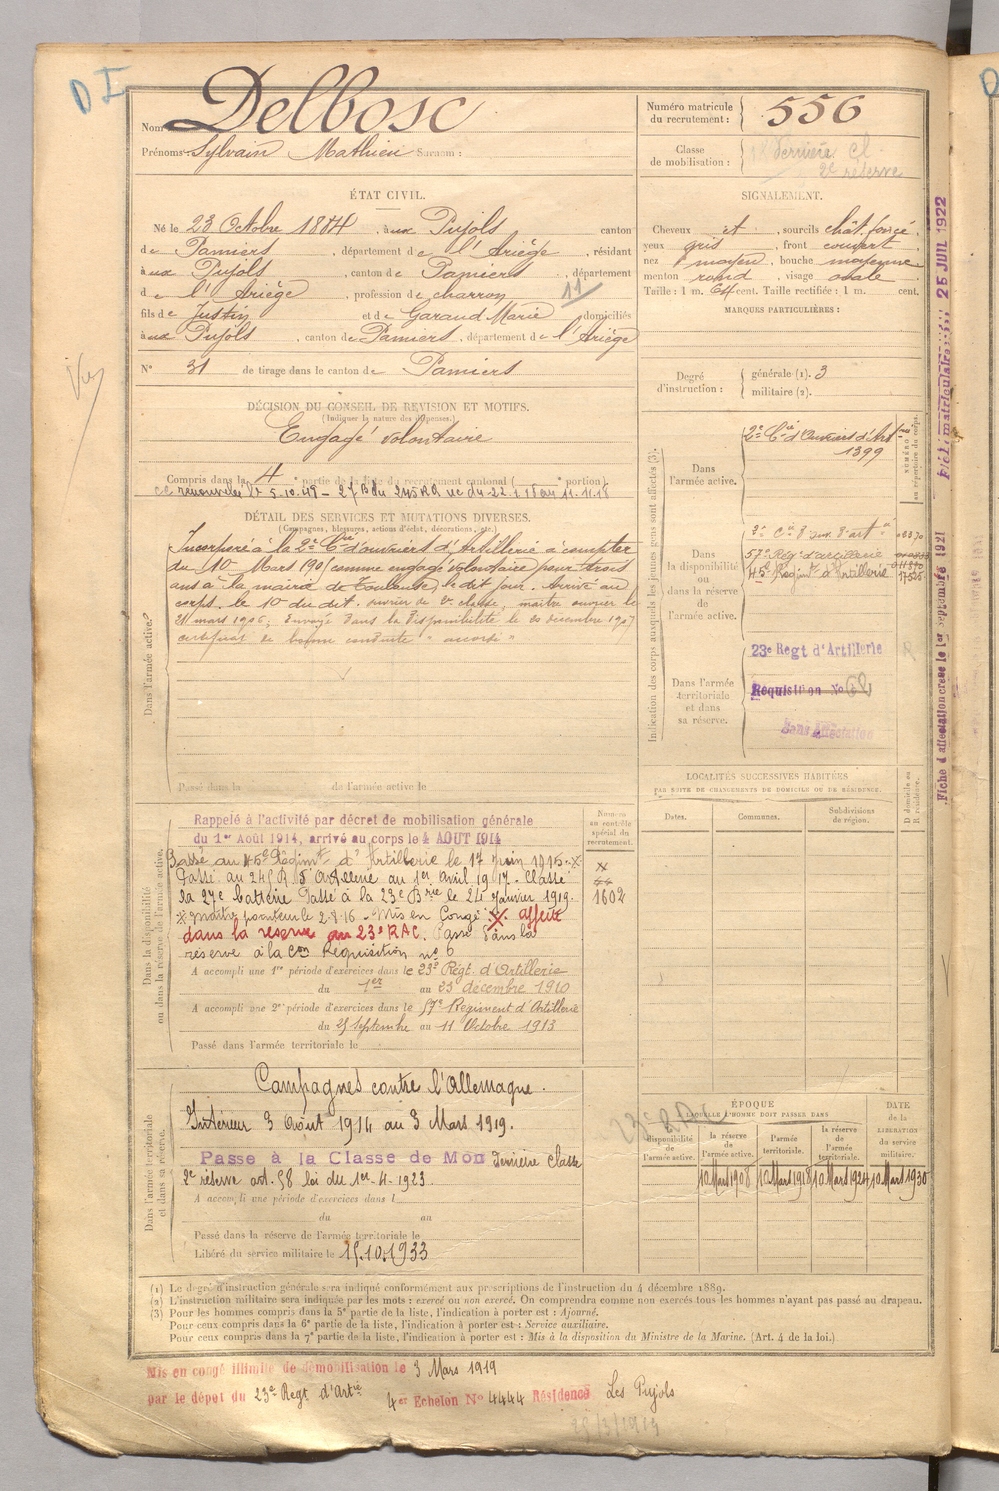 D I
Nom Delbosc
Prénoms Sylvain Mathieu Surnom :
Numéro matricule du recrutement : 556
Classe de mobilisation : Dernière cl
2e réserve
ÉTAT CIVIL.
Né le 23 Octobre 1884, à aux Pujols canton
de Pamiers, département de l'Ariège, résidant
à aux Pujols, canton de Pamiers, département
d e l'Ariège, profession de charron 11
fils de Justin et de Garaud Marie, domiciliés
à aux Pujols, canton de Pamiers, département de l'Ariège
N° 31 de tirage dans le canton de Pamiers
SIGNALEMENT.
Cheveux et, sourcils chât. foncé,
yeux gris, front couvert,
nez moyen, bouche moyenne
menton rond, visage ovale
Taille : 1 m. 64 cent. Taille rectifiée : 1 m. cent.
MARQUES PARTICULIÈRES :
Degré d'instruction : générale (1). 3
militaire (2).
DÉCISION DU CONSEIL DE REVISION ET MOTIFS.
(Indiquer la nature des dispenses.)
Engagé volontaire
Compris dans la 4e partie de la liste du recrutement cantonal ( e portion)
DÉTAIL DES SERVICES ET MUTATIONS DIVERSES.
(Campagnes, blessures, actions d'éclat, décorations, etc.)
Dans l'armée active.
Incorporé à la 2e Cie d'ouvriers d'Artillerie à compter
du 10 Mars 190 comme engagé volontaire pour trois
ans à la mairie de Toulouse, le dit jour. Arrivé au
corps le 10 du dit. ouvrier de 2e classe, maître ouvrier le
21 mars 1906; Envoyé dans la disponibilité le 20 décembre 1907
certificat de bonne conduite "accordé"
Passé dans la de l'armée active le
Indication des corps auxquels les jeunes gens sont affectés (3).
NUMÉRO au répertoire du corps.
Dans l'armée active.
2e Cie d'Ouvriers d'Art
1399
Dans la disponibilité ou dans la réserve de l'armée active.
57e Rég. d'artillerie
45e Régimt d'Artillerie
Dans l'armée territoriale et dans sa réserve.
23e Regt d'Artillerie
Requisition No 62
Sans affectation
LOCALITÉS SUCCESSIVES HABITÉES
PAR SUITE DE CHANGEMENTS DE DOMICILE OU DE RÉSIDENCE.
Dates. Communes. Subdivisions de région. D domicile ou R résidence.
Dans la disponibilité ou dans la réserve de l'armée active.
Numéro au contrôle spécial du recrutement.
Rappelé à l'activité par décret de mobilisation générale
du 1er Août 1914, arrivé au corps le 4 AOUT 1914
Passé au 45e Régimt d'Artillerie le 17 Juin 1915.
Passé au 245 R. d'Artillerie au 1er avril 1917. Classé
la 27e batterie Passé à la 23e Bie le 24 Janvier 1919. 1602
maître pointeur le 2-8-16 - Mis en Congé affecté
dans la réserve au 23e RAC. Passé dans la
réserve à la Con Requisition n° 6
A accompli une 1re période d'exercices dans le 23e Régt. d'Artillerie
du 1er au 23 décembre 1910
A accompli une 2e période d'exercices dans le 57e Regiment d'Artillerie
du 25 Septembre au 11 Octobre 1913
Passé dans l'armée territoriale le
Dans l'armée territoriale et dans sa réserve.
Campagnes contre l'Allemagne.
Intérieur 3 Août 1914 au 3 Mars 1919.
Passe à la Classe de Mob Dernière classe
2e réserve art. 58 loi du 1er-4-1923.
A accompli une période d'exercices dans l
du au
Passé dans la réserve de l'armée territoriale le
Libéré du service militaire le 15.10.1933
23e RAC
ÉPOQUE À LAQUELLE L'HOMME DOIT PASSER DANS
DATE de la LIBÉRATION du service militaire.
disponibilité de l'armée active. la réserve de l'armée active. l'armée territoriale. la réserve de l'armée territoriale.
10 Mars 1908 10 Mars 1918 10 Mars 1924 10 Mars 1930
(1) Le degré d'instruction générale sera indiqué conformément aux prescriptions de l'instruction du 4 décembre 1889.
(2) L'instruction militaire sera indiquée par les mots : exercé ou non exercé. On comprendra comme non exercés tous les hommes n'ayant pas passé au drapeau.
(3) Pour les hommes compris dans la 5e partie de la liste, l'indication à porter est : Ajourné.
Pour ceux compris dans la 6e partie de la liste, l'indication à porter est : Service auxiliaire.
Pour ceux compris dans la 7e partie de la liste, l'indication à porter est : Mis à la disposition du Ministre de la Marine. (Art. 4 de la loi.)
Mis en congé illimité de démobilisation le 3 Mars 1919
par le dépot du 23e Regt d'Artie 4er Echelon No 4444 Résidence Les Pujols
Fiche d'affectation créée le 1er septembre 1921
25 JUIL 1922